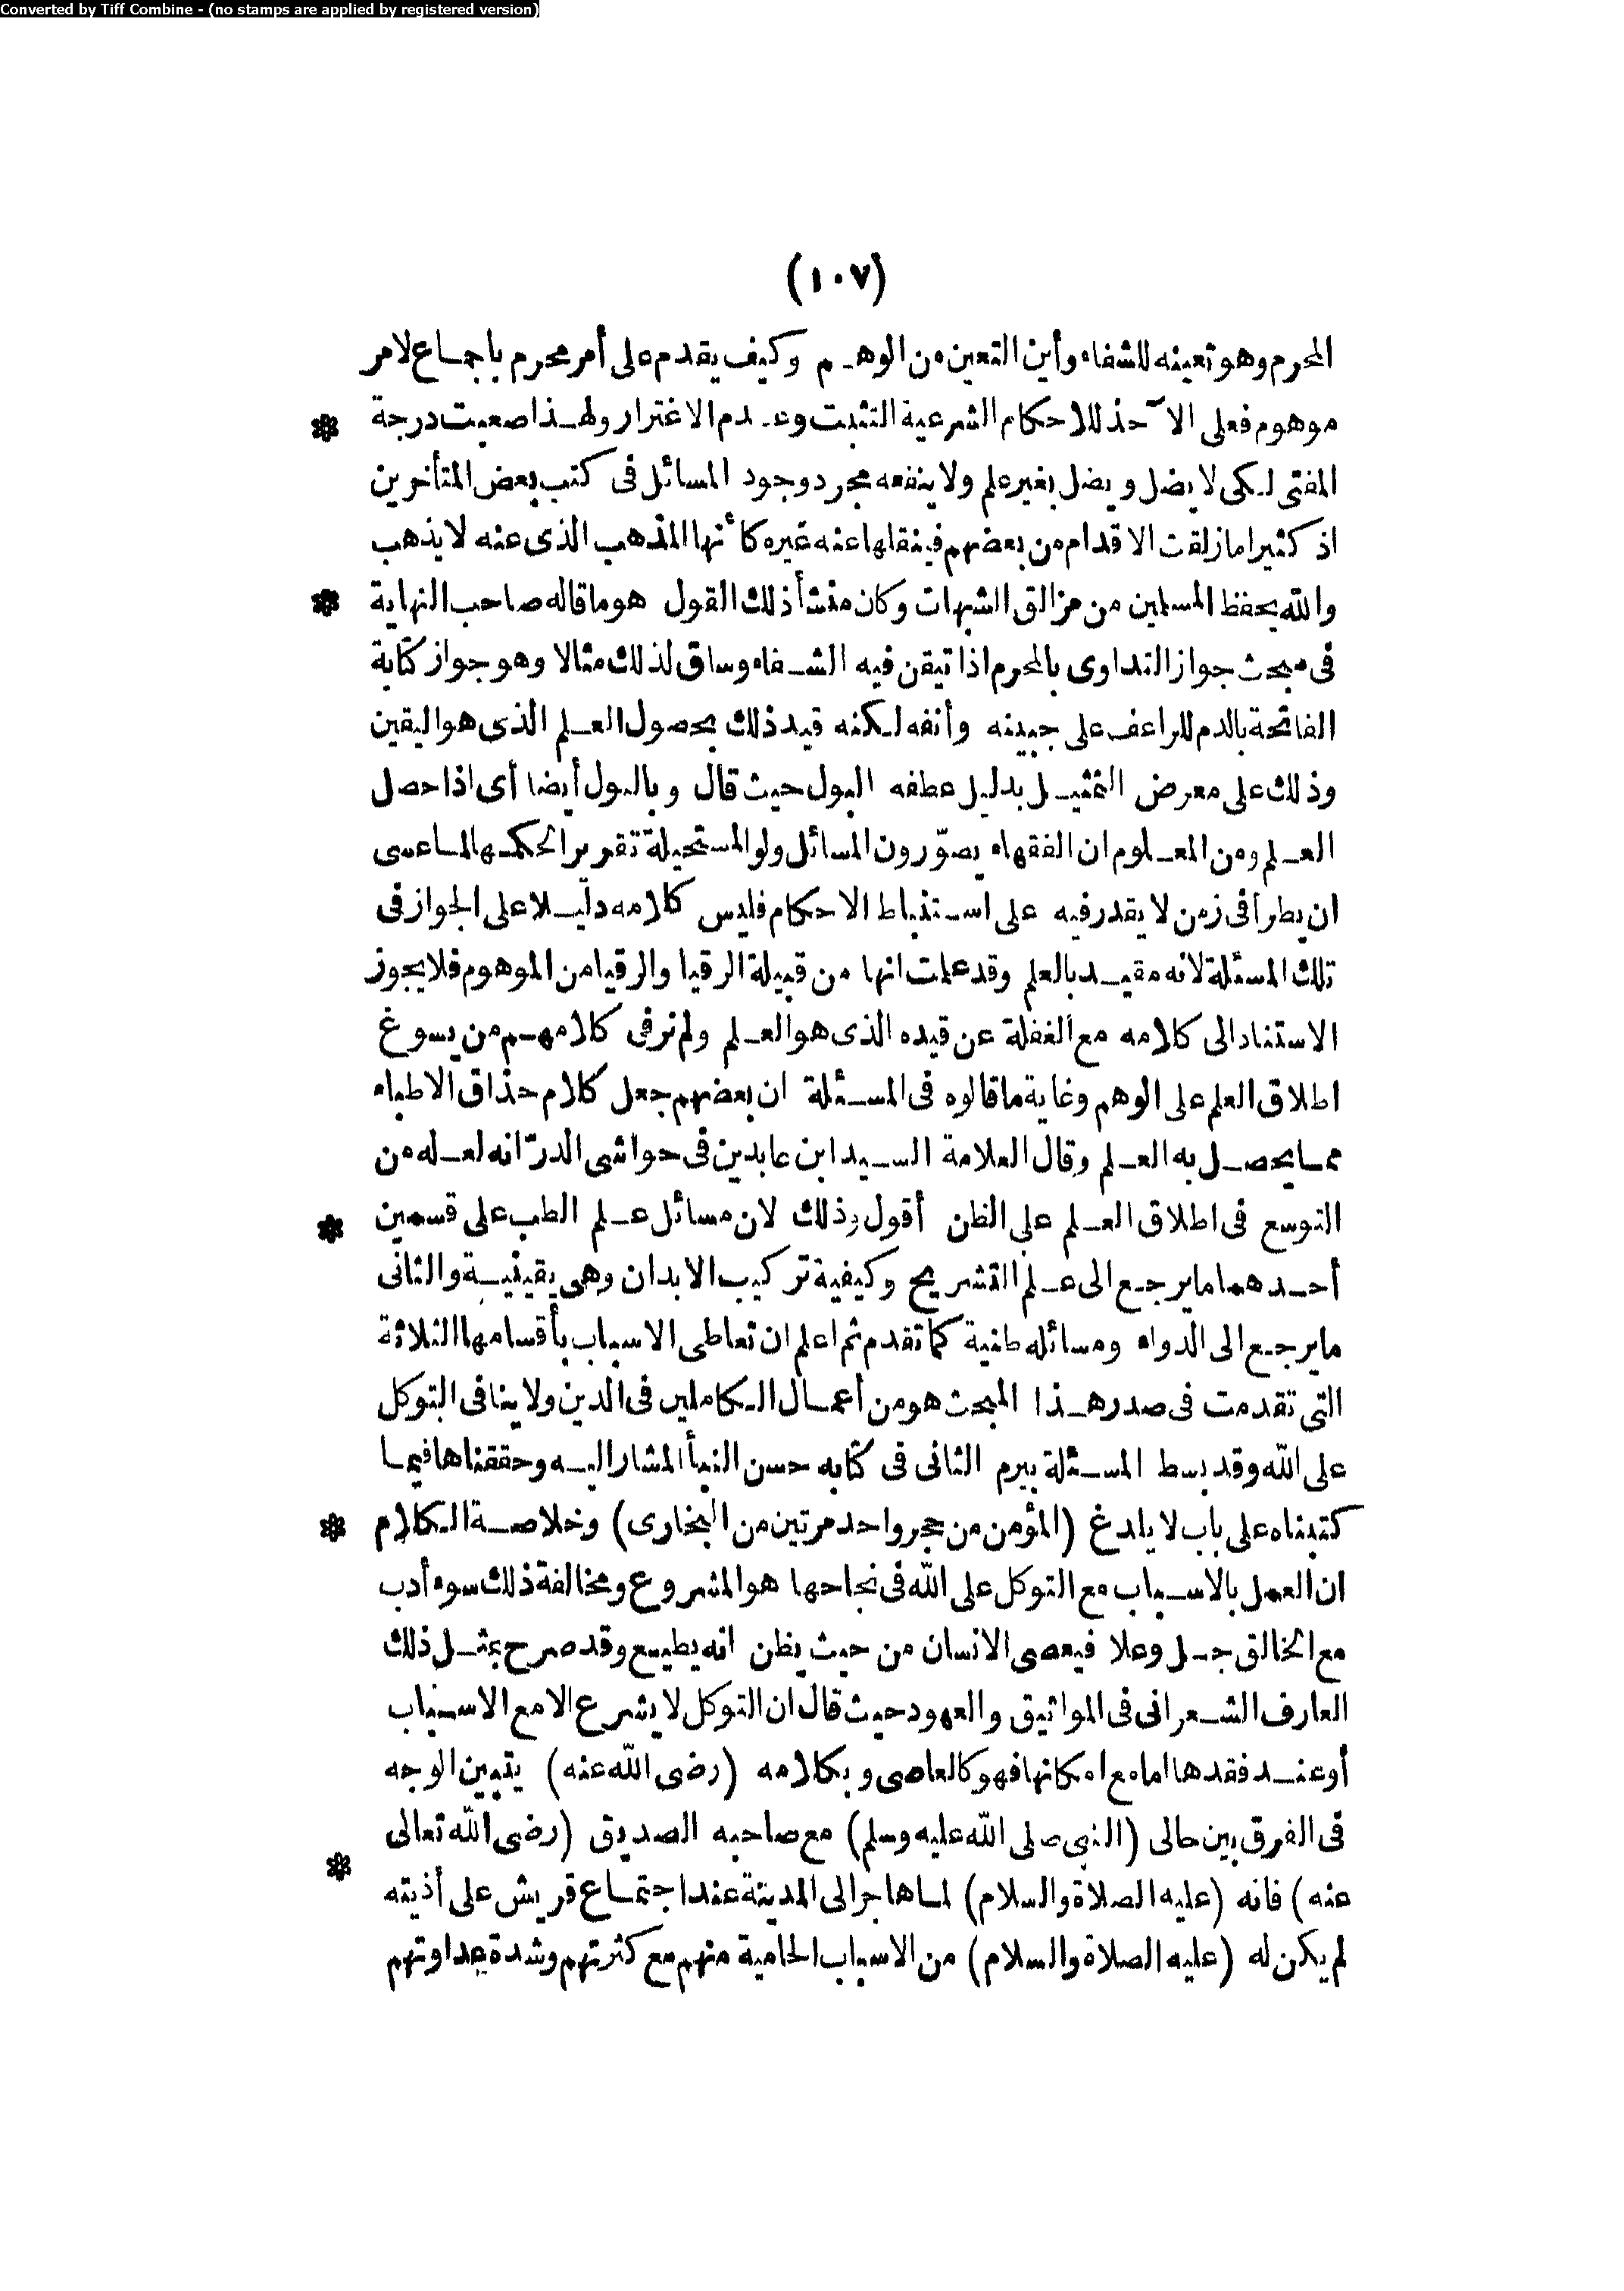 Converted by Tiff Combine - (no stamps are applied by registered version)
(١٠٧)
المحرم وهو تعينه للشفاء وأين التعين من الوهم وكيف يقدم على أمر محرم باجماع لامر
موهوم فعلى الآخذ للاحكام الشرعية التثبت وعدم الاغترار ولهذا صعبت درجة *
المفتى لكى لا يضل ويضل بغير علم ولا ينفعه مجرد وجود المسائل فى كتب بعض المتأخرين
اذ كثيرا ما زلقت الاقدام من بعضهم فينقلها عنه غيره كأنها المذهب الذى عنه لا يذهب
والله يحفظ المسلمين من مزالق الشبهات وكان منشأ ذلك القول هو ما قاله صاحب النهاية *
فى مبحث جواز التداوى بالمحرم اذا تيقن فيه الشفاء وساق لذلك مثالا وهو جواز كتابة
الفاتحة بالدم للراعف على جبينه وأنفه لكنه قيد ذلك بحصول العلم الذى هو اليقين
وذلك على معرض التمثيل بدليل عطفه البول حيث قال وبالبول أيضا أى اذا حصل
العلم ومن المعلوم ان الفقهاء يصوّرون المسائل ولو المستحيلة تقريرا لحكمها لما عسى
ان يطرأ فى زمن لا يقدر فيه على استنباط الاحكام فليس كلامه دليلا على الجواز فى
تلك المسئلة لانه مقيد بالعلم وقد علمت انها من قبيلة الرقيا والرقيا من الموهوم فلا يجوز
الاستناد الى كلامه مع الغفلة عن قيده الذى هو العلم ولم نر فى كلامهم من يسوغ
اطلاق العلم على الوهم وغاية ما قالوه فى المسئلة ان بعضهم جعل كلام حذاق الاطباء
مما يحصل به العلم وقال العلامة السيد ابن عابدين فى حواشى الدرّ انه لعله من
التوسع فى اطلاق العلم على الظن أقول وذلك لان مسائل علم الطب على قسمين *
أحدهما ما يرجع الى علم التشريح وكيفية تركيب الابدان وهى يقينية والثانى
ما يرجع الى الدواء ومسائله ظنية كما تقدم ثم اعلم ان تعاطى الاسباب بأقسامها الثلاثة
التى تقدمت فى صدر هذا المبحث هو من أعمال الكاملين فى الدين ولا ينافى التوكل
على الله وقد بسط المسئلة بيرم الثانى فى كتابه حسن النبأ المشار اليه وحققناها فيما
كتبناه على باب لا يلدغ (المؤمن من جحر واحد مرتين من البخارى) وخلاصة الكلام *
ان العمل بالاسباب مع التوكل على الله فى نجاحها هو المشروع ومخالفة ذلك سوء أدب
مع الخالق جل وعلا فيعصى الانسان من حيث يظن انه يطيع وقد صرح بمثل ذلك
العارف الشعرانى فى المواثيق والعهود حيث قال ان التوكل لا يشرع الا مع الاسباب
أو عند فقدها اما مع امكانها فهو كالعاصى وبكلامه (رضى الله عنه) يتبين الوجه
فى الفرق بين حالى (النبى صلى الله عليه وسلم) مع صاحبه الصديق (رضى الله تعالى
عنه) فانه (عليه الصلاة والسلام) لما هاجر الى المدينة عند اجتماع قريش على أذيته *
لم يكن له (عليه الصلاة والسلام) من الاسباب الحامية منهم مع كثرتهم وشدة عداوتهم